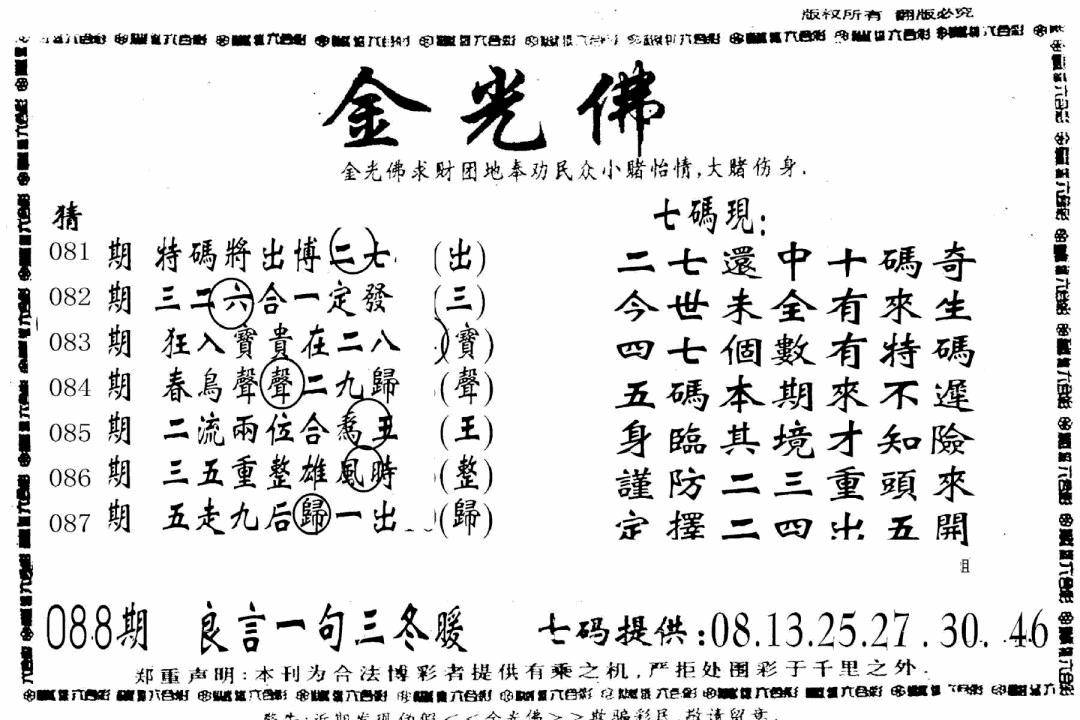 版权所有 翻版必究
金光佛
金光佛求财团地奉劝民众小赌怡情,大赌伤身.
猜
081期 特碼將出博二七 (出)
082期 三二六合一定發 (三)
083期 狂入寶貴在二八 (寶)
084期 春鳥聲聲二九歸 (聲)
085期 二流兩位合喬王 (王)
086期 三五重整雄風時 (整)
087期 五走九后歸一出 (歸)
七碼現:
二七還中十碼奇
今世未全有來生
四七個數有特碼
五碼本期來不遲
身臨其境才知險
謹防二三重頭來
定擇二四出五開
088期 良言一句三冬暖 七码提供:08.13.25.27.30.46
郑重声明:本刊为合法博彩者提供有乘之机,严拒处围彩于千里之外.
警告:近期发现仿假<<金光佛>>欺骗彩民,敬请留意.